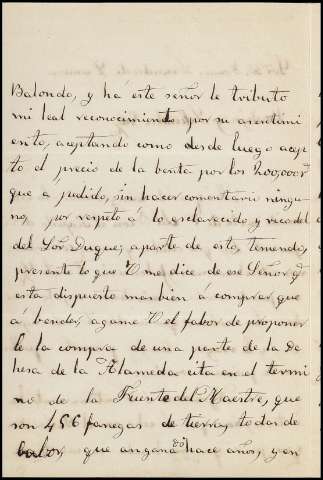 Balondo, y há este señor le tributo
mi leal reconocimiento por su asentimi
ento, aceptando como desde luego acep
to el precio de la benta por los 200,000 r
que a pedido, sin hacer comentario ningu
no, por respeto a lo esclarecido y recto del
del Sor Duque; aparte de esto, teniendo
presente lo que V me dice de ese Señor q
esta dispuesto mas bien á comprar que
á bender, agame V el fabor de proponer
le la compra de una parte de la De
hesa de la Alameda cita en el termi
no de la Fuente del Maestre, que
son 456 fanegas de tierra, todas de
balor, que hace años, y en